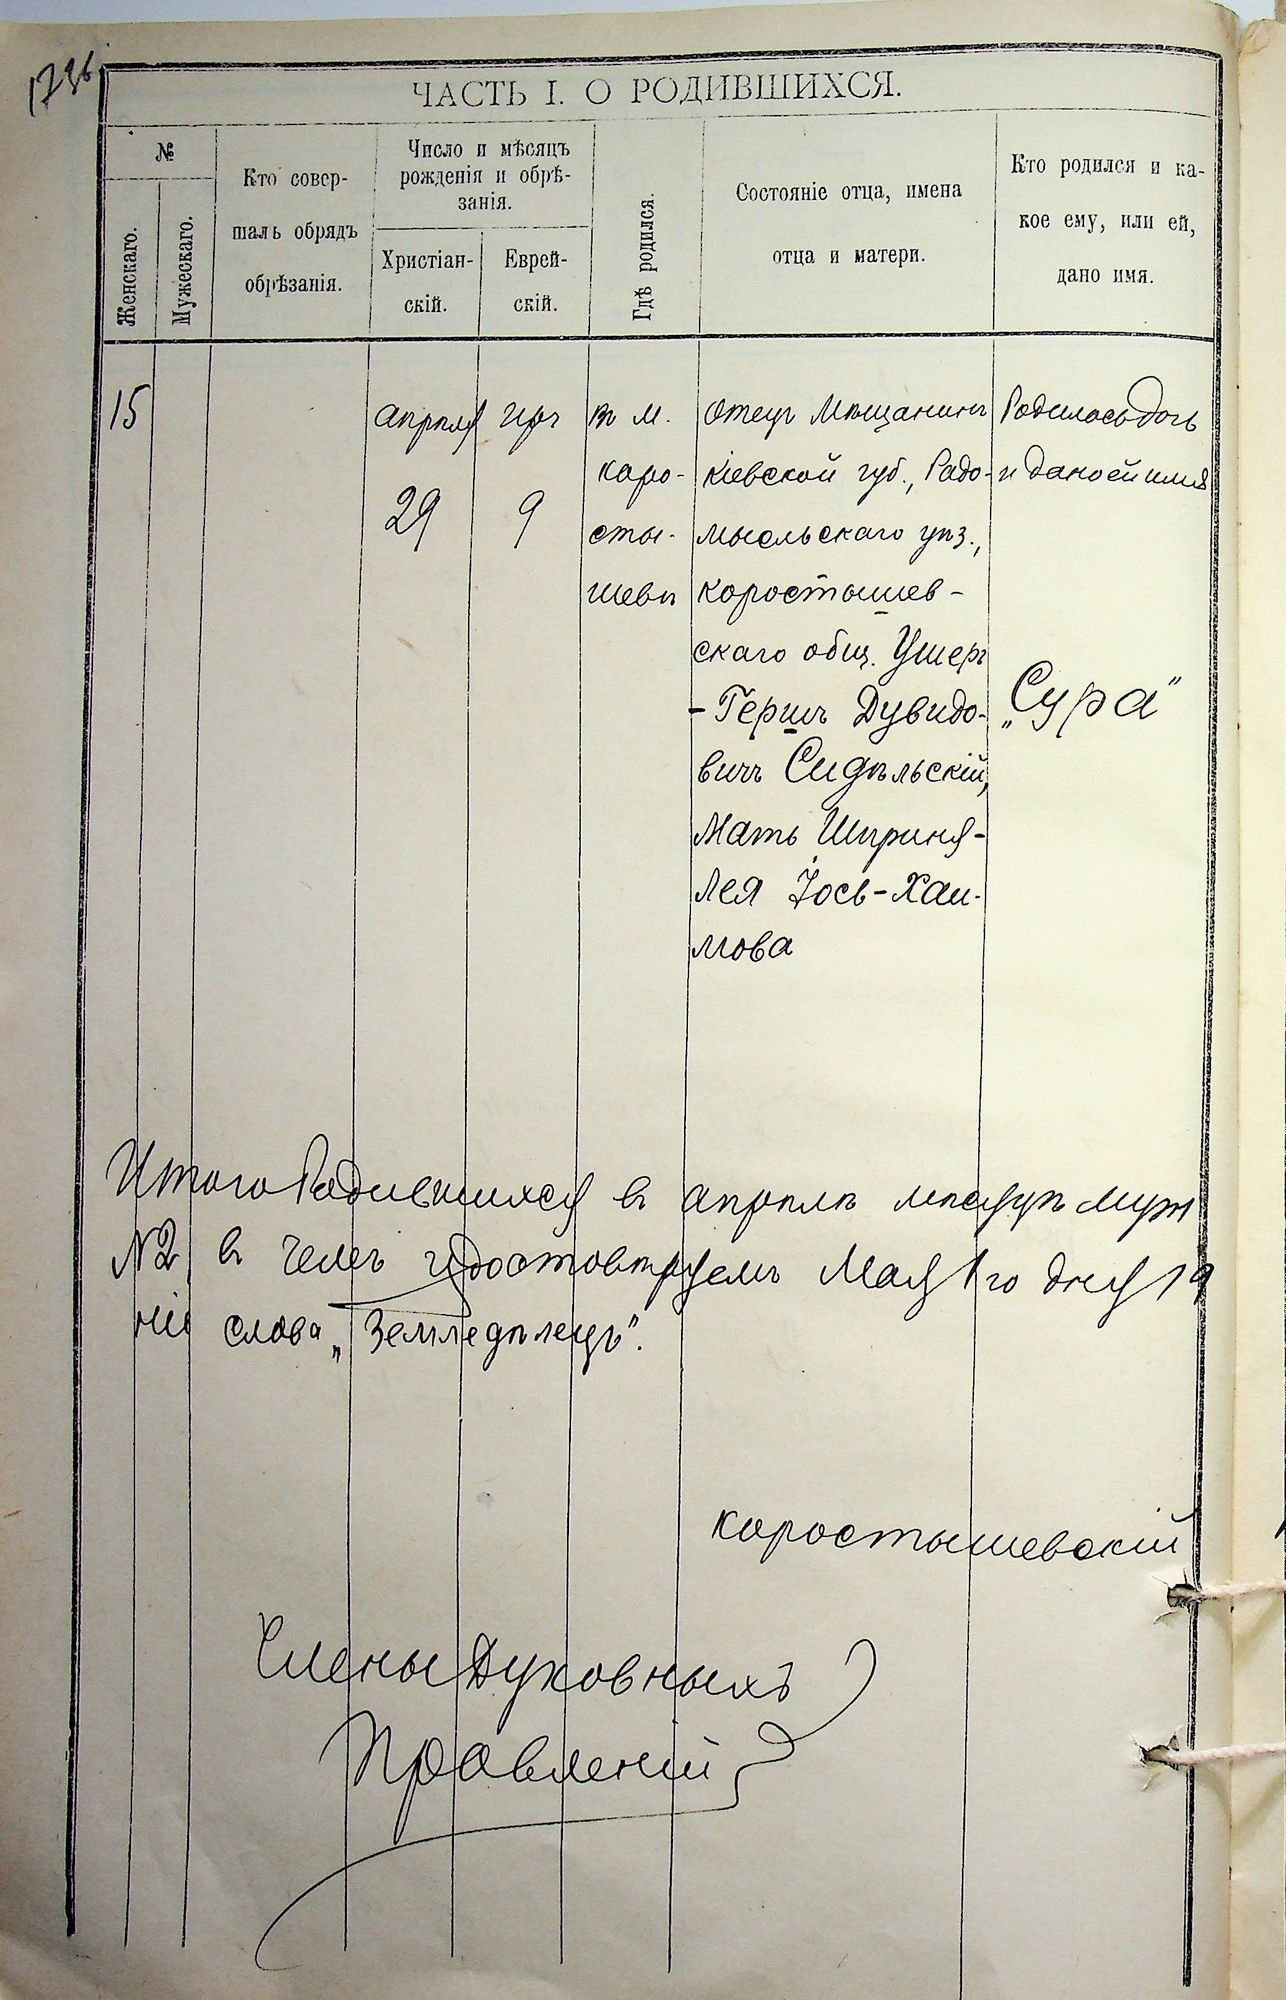 173б
ЧАСТЬ I. О РОДИВШИХСЯ.
№
Женскаго.
Мужескаго.
Кто совер-
шалъ обрядъ
обрѣзанія.
Число и мѣсяцъ
рожденія и обрѣ-
занія.
Христіан-
скій.
Еврей-
скій.
Гдѣ родился.
Состояніе отца, имена
отца и матери.
Кто родился и ка-
кое ему, или ей,
дано имя.
15
Апрѣля
29
Иръ
9
въ м.
Коро-
сты-
шевѣ
Отецъ Мѣщанинъ
Кіевской губ., Радо-
мысльскаго уѣз.,
Коростышев-
скаго общ. Ушеръ
-Гершъ Дувидо-
вичъ Сидѣльскій,
Мать Шприня-
Лея Іось-Хаи-
мова
Родилась дочь
и дано ей имя
„Сура"
Итого Родившихся въ апрѣлѣ мѣсяцѣ муж
№2 въ чемъ удостовѣряемъ Мая 1го дня 19
ніе слова „Земледѣлецъ".
Коростышевскій
Члены Духовныхъ
Правленій